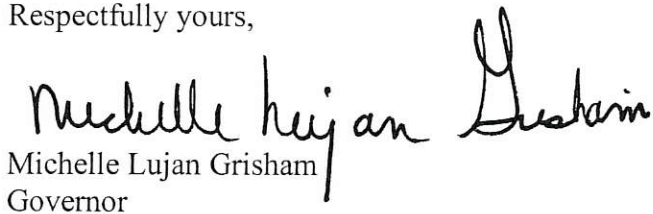 Respectfully yours,
Michelle Lujan Grisham
Michelle Lujan Grisham
Governor